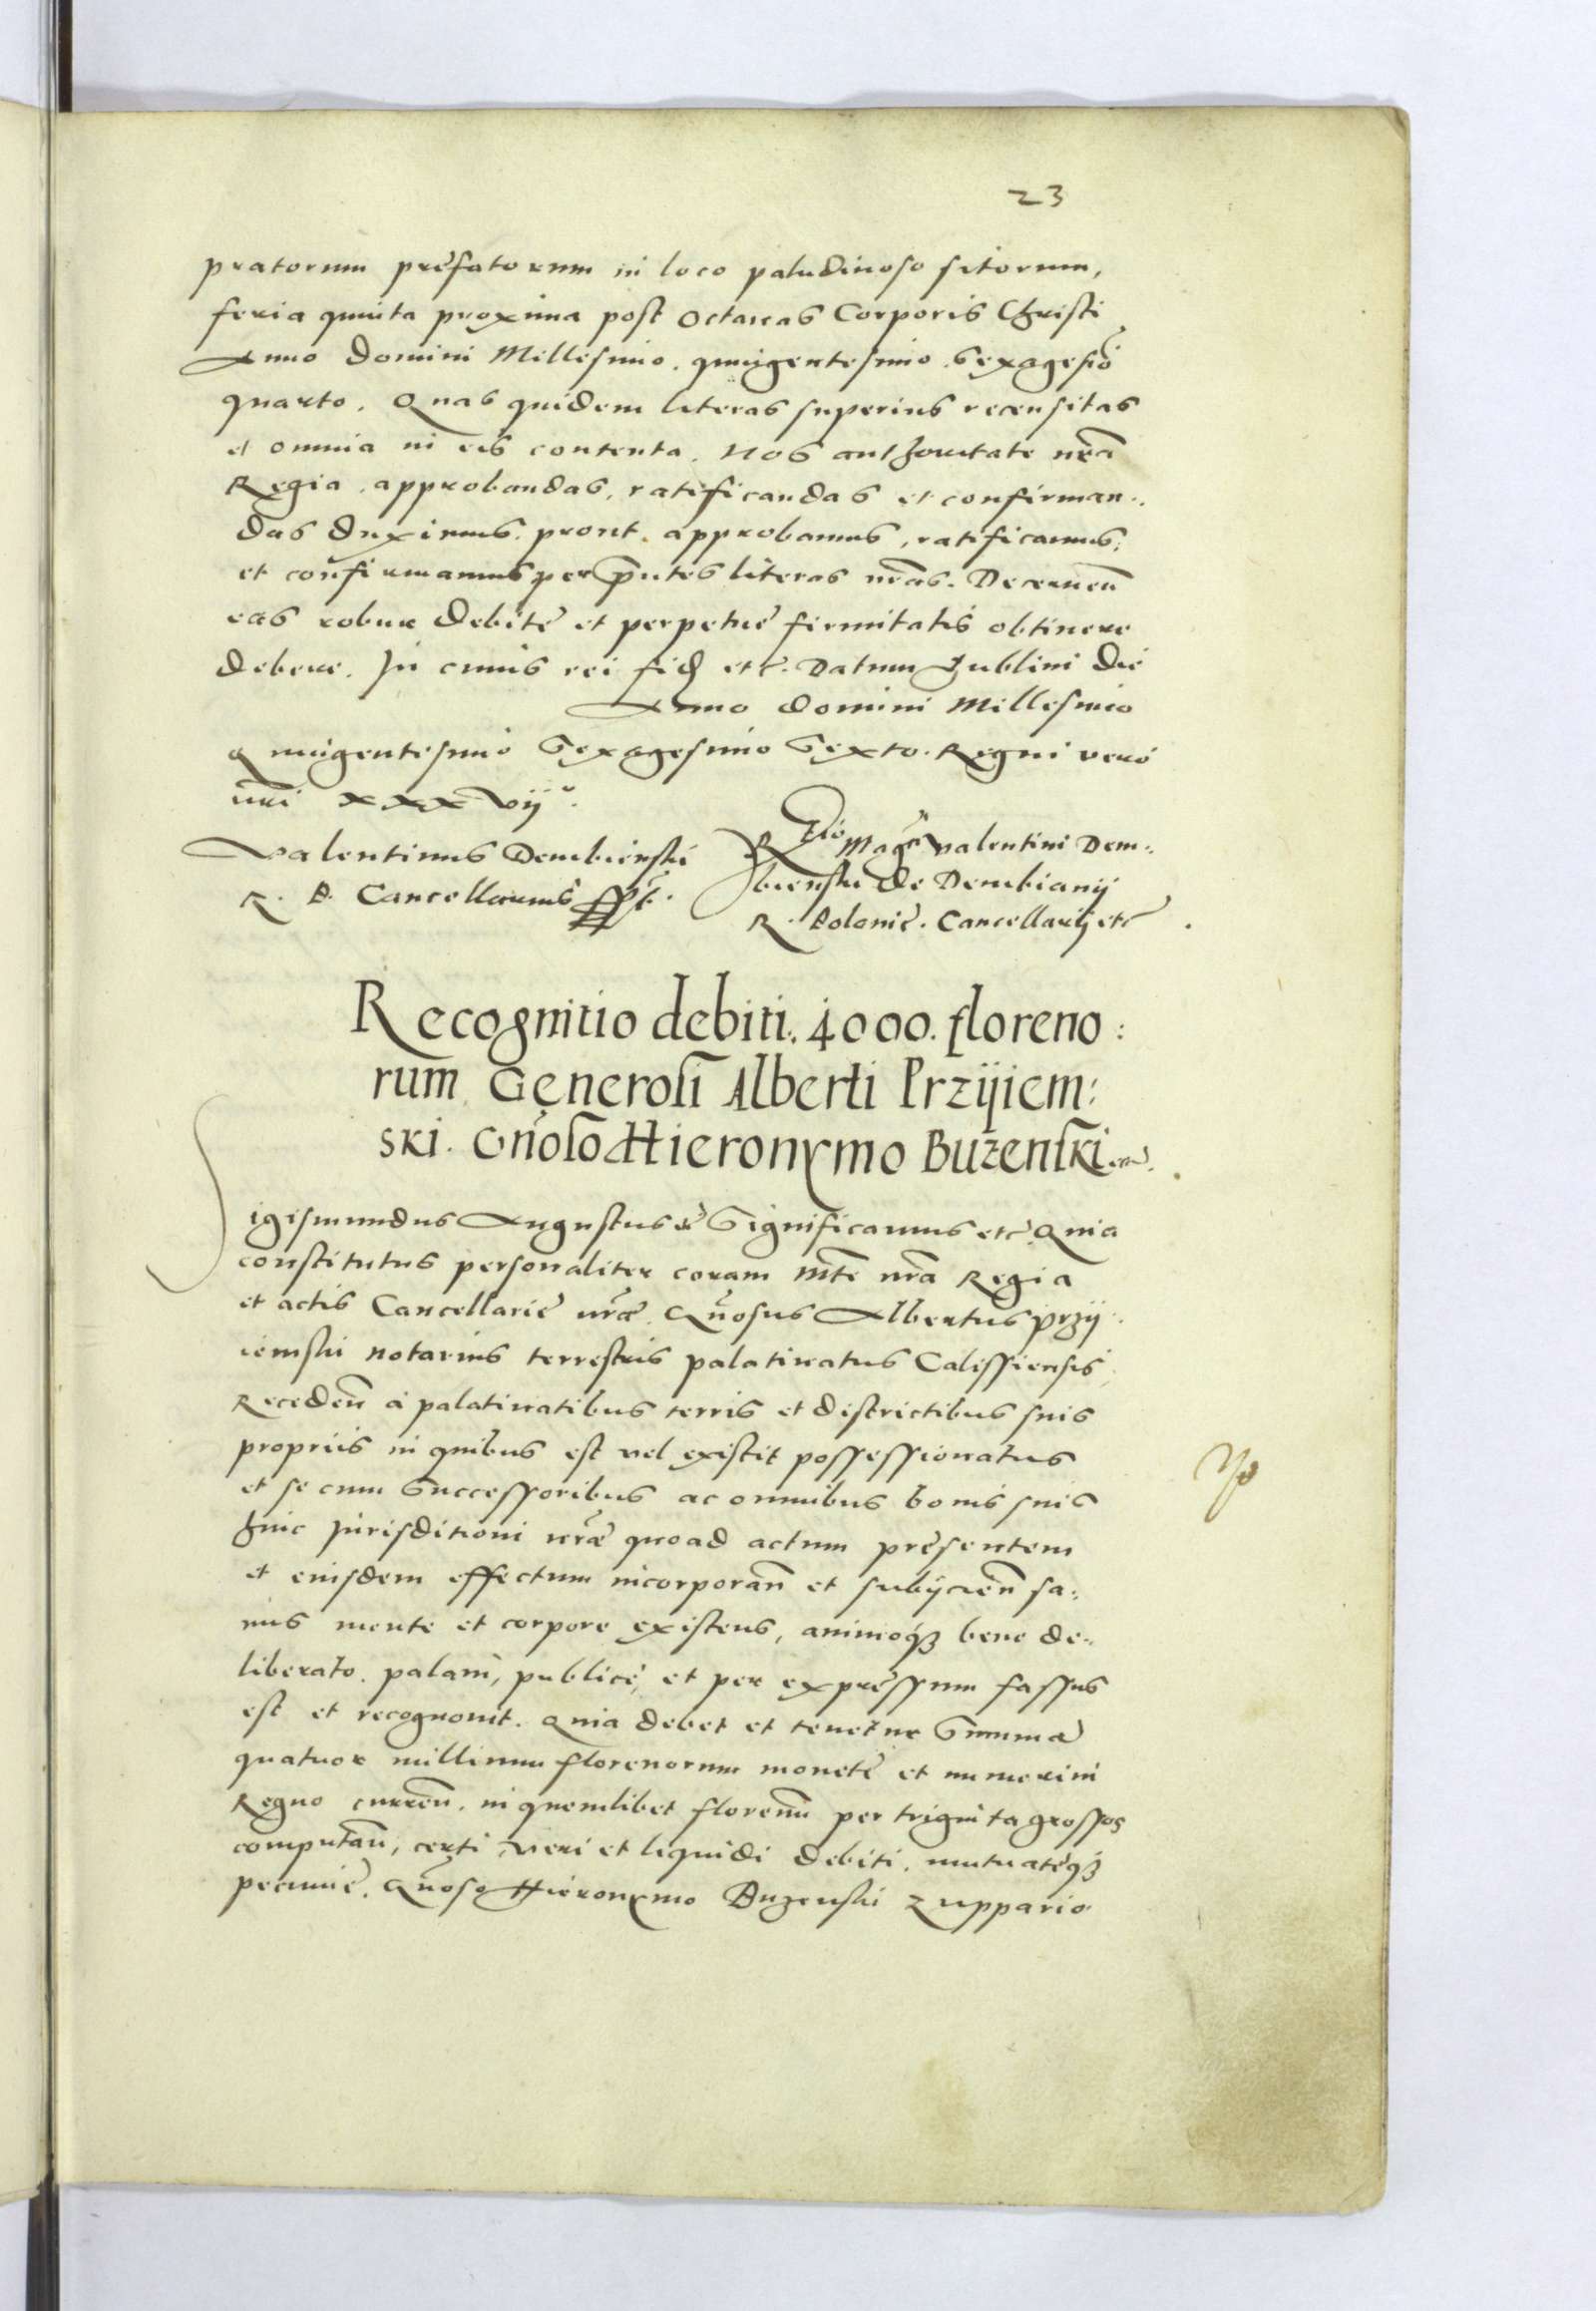 23
pratorum prefatorum in loco paludinoso sitorum,
feria quinta proxima post octauas Corporis Christi
Anno Domini Millesimo. quingentesimo. Sexagesio
quarto. Quas quidem literas superius recensitas
et omnia in eis contenta. Nos authoritate nrã
Regia. approbandas, ratificandas et confirman..
das duximus. prout. approbamus, ratificamus,
et confirmamus per pñtes literas nrãs. Decerneñ
eas robur debitè et perpetuè firmitatis obtinere
debere. In cuius rei fid etc. Datum Lublini die
Anno Domini Millesimo
quingentesimo Sexagesimo Sexto. Regni vero
nri xxxvij°.
Valentinus Dembienski
R. P. Cancellarius sspt.
Rlõ Magci valentini Dem..
bienski de Dembianij
R. Poloniè. Cancellarij etc
Recognitio debiti. 4000. floreno:
rum Generosi Alberti Przijiem:
ski. Gñoso Hieronymo Buzenski etc.
Sigismundus Augustus etc Significamus etc Quia
constitutus personaliter coram Mte nrã Regia
et actis Cancellariè nræ. Gñosus Albertus Przij.
iemski notarius terrestris palatinatus Calissiensis,
Recedeñ à palatinatibus terris et districtibus suis
propriis in quibus est vel existit possessionatus
et se cum Successoribus ac omnibus bonis suis
huic Jurisditioni nræ quoad actum presentem
et eiusdem effectum incorporañ et subijcieñ sa.
nus mente et corpore existens, animoq3 bene de..
liberato. palam, publicè, et per expressum fassus
est et recognouit. Quia debet et tenetur Summa
quatuor millium florenorum monetè et numeri in
Regno curreñ. in quemlibet florenũ per triginta grossos
computañ, certi, veri et liquidi debiti. mutuatèq3
pecuniè. Gñoso Hieronymo Buzenski Zuppario